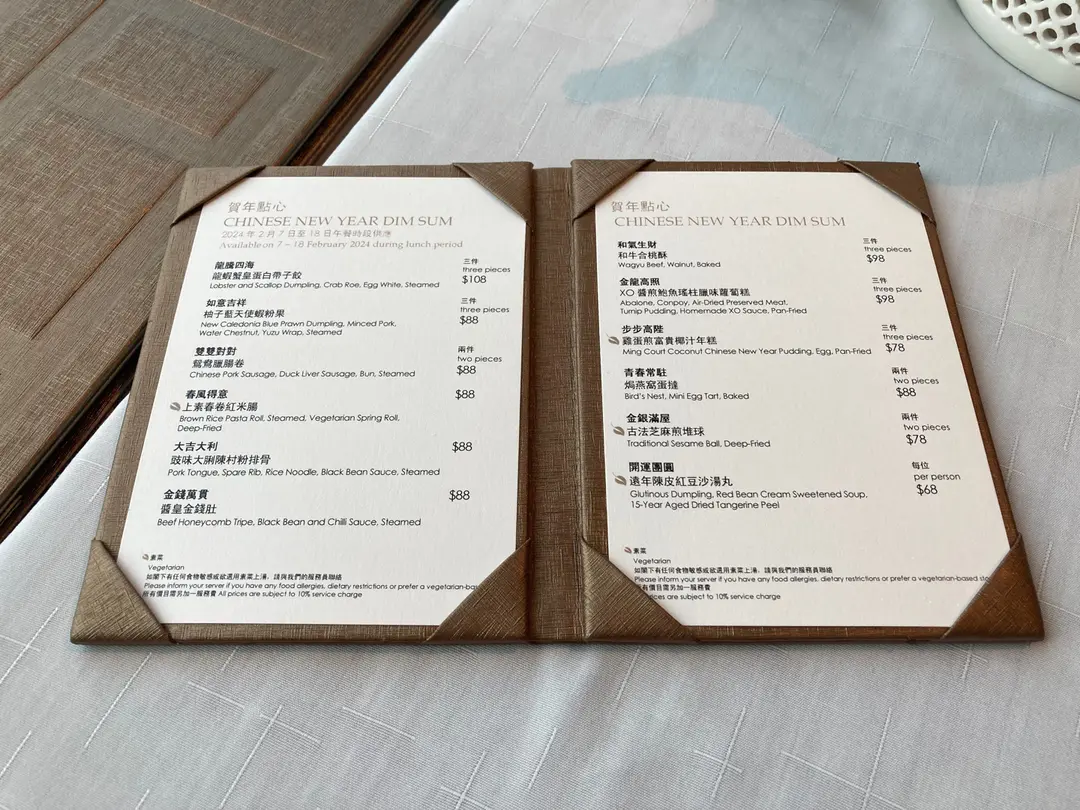 賀年點心
CHINESE NEW YEAR DIM SUM
2024 年 2 月 7 日至 18 日午餐時段供應
Available on 7 – 18 February 2024 during lunch period
龍騰四海
龍蝦蟹皇蛋白帶子餃
Lobster and Scallop Dumpling, Crab Roe, Egg White, Steamed
三件
three pieces
$108
如意吉祥
柚子藍天使蝦粉果
New Caledonia Blue Prawn Dumpling, Minced Pork,
Water Chestnut, Yuzu Wrap, Steamed
三件
three pieces
$88
雙雙對對
鴛鴦臘腸卷
Chinese Pork Sausage, Duck Liver Sausage, Bun, Steamed
兩件
two pieces
$88
春風得意
上素春卷紅米腸
Brown Rice Pasta Roll, Steamed, Vegetarian Spring Roll,
Deep-Fried
$88
大吉大利
豉味大脷陳村粉排骨
Pork Tongue, Spare Rib, Rice Noodle, Black Bean Sauce, Steamed
$88
金錢萬貫
醬皇金錢肚
Beef Honeycomb Tripe, Black Bean and Chilli Sauce, Steamed
$88
素菜
Vegetarian
如閣下有任何食物敏感或欲選用素菜上湯，請與我們的服務員聯絡
Please inform your server if you have any food allergies, dietary restrictions or prefer a vegetarian-ba
所有價目需另加一服務費 All prices are subject to 10% service charge
賀年點心
CHINESE NEW YEAR DIM SUM
和氣生財
和牛合桃酥
Wagyu Beef, Walnut, Baked
三件
three pieces
$98
金龍高照
XO 醬煎鮑魚瑤柱臘味蘿蔔糕
Abalone, Conpoy, Air-Dried Preserved Meat,
Turnip Pudding, Homemade XO Sauce, Pan-Fried
三件
three pieces
$98
步步高陞
雞蛋煎富貴椰汁年糕
Ming Court Coconut Chinese New Year Pudding, Egg, Pan-Fried
三件
three pieces
$78
青春常駐
焗燕窩蛋撻
Bird's Nest, Mini Egg Tart, Baked
兩件
two pieces
$88
金銀滿屋
古法芝麻煎堆球
Traditional Sesame Ball, Deep-Fried
兩件
two pieces
$78
開運團圓
遠年陳皮紅豆沙湯丸
Glutinous Dumpling, Red Bean Cream Sweetened Soup,
15-Year Aged Dried Tangerine Peel
每位
per person
$68
素菜
Vegetarian
如閣下有任何食物敏感或欲選用素菜上湯，請與我們的服務員聯絡
Please inform your server if you have any food allergies, dietary restrictions or prefer a vegetarian-based sto
所有價目需另加一服務費
ces are subject to 10% service charge